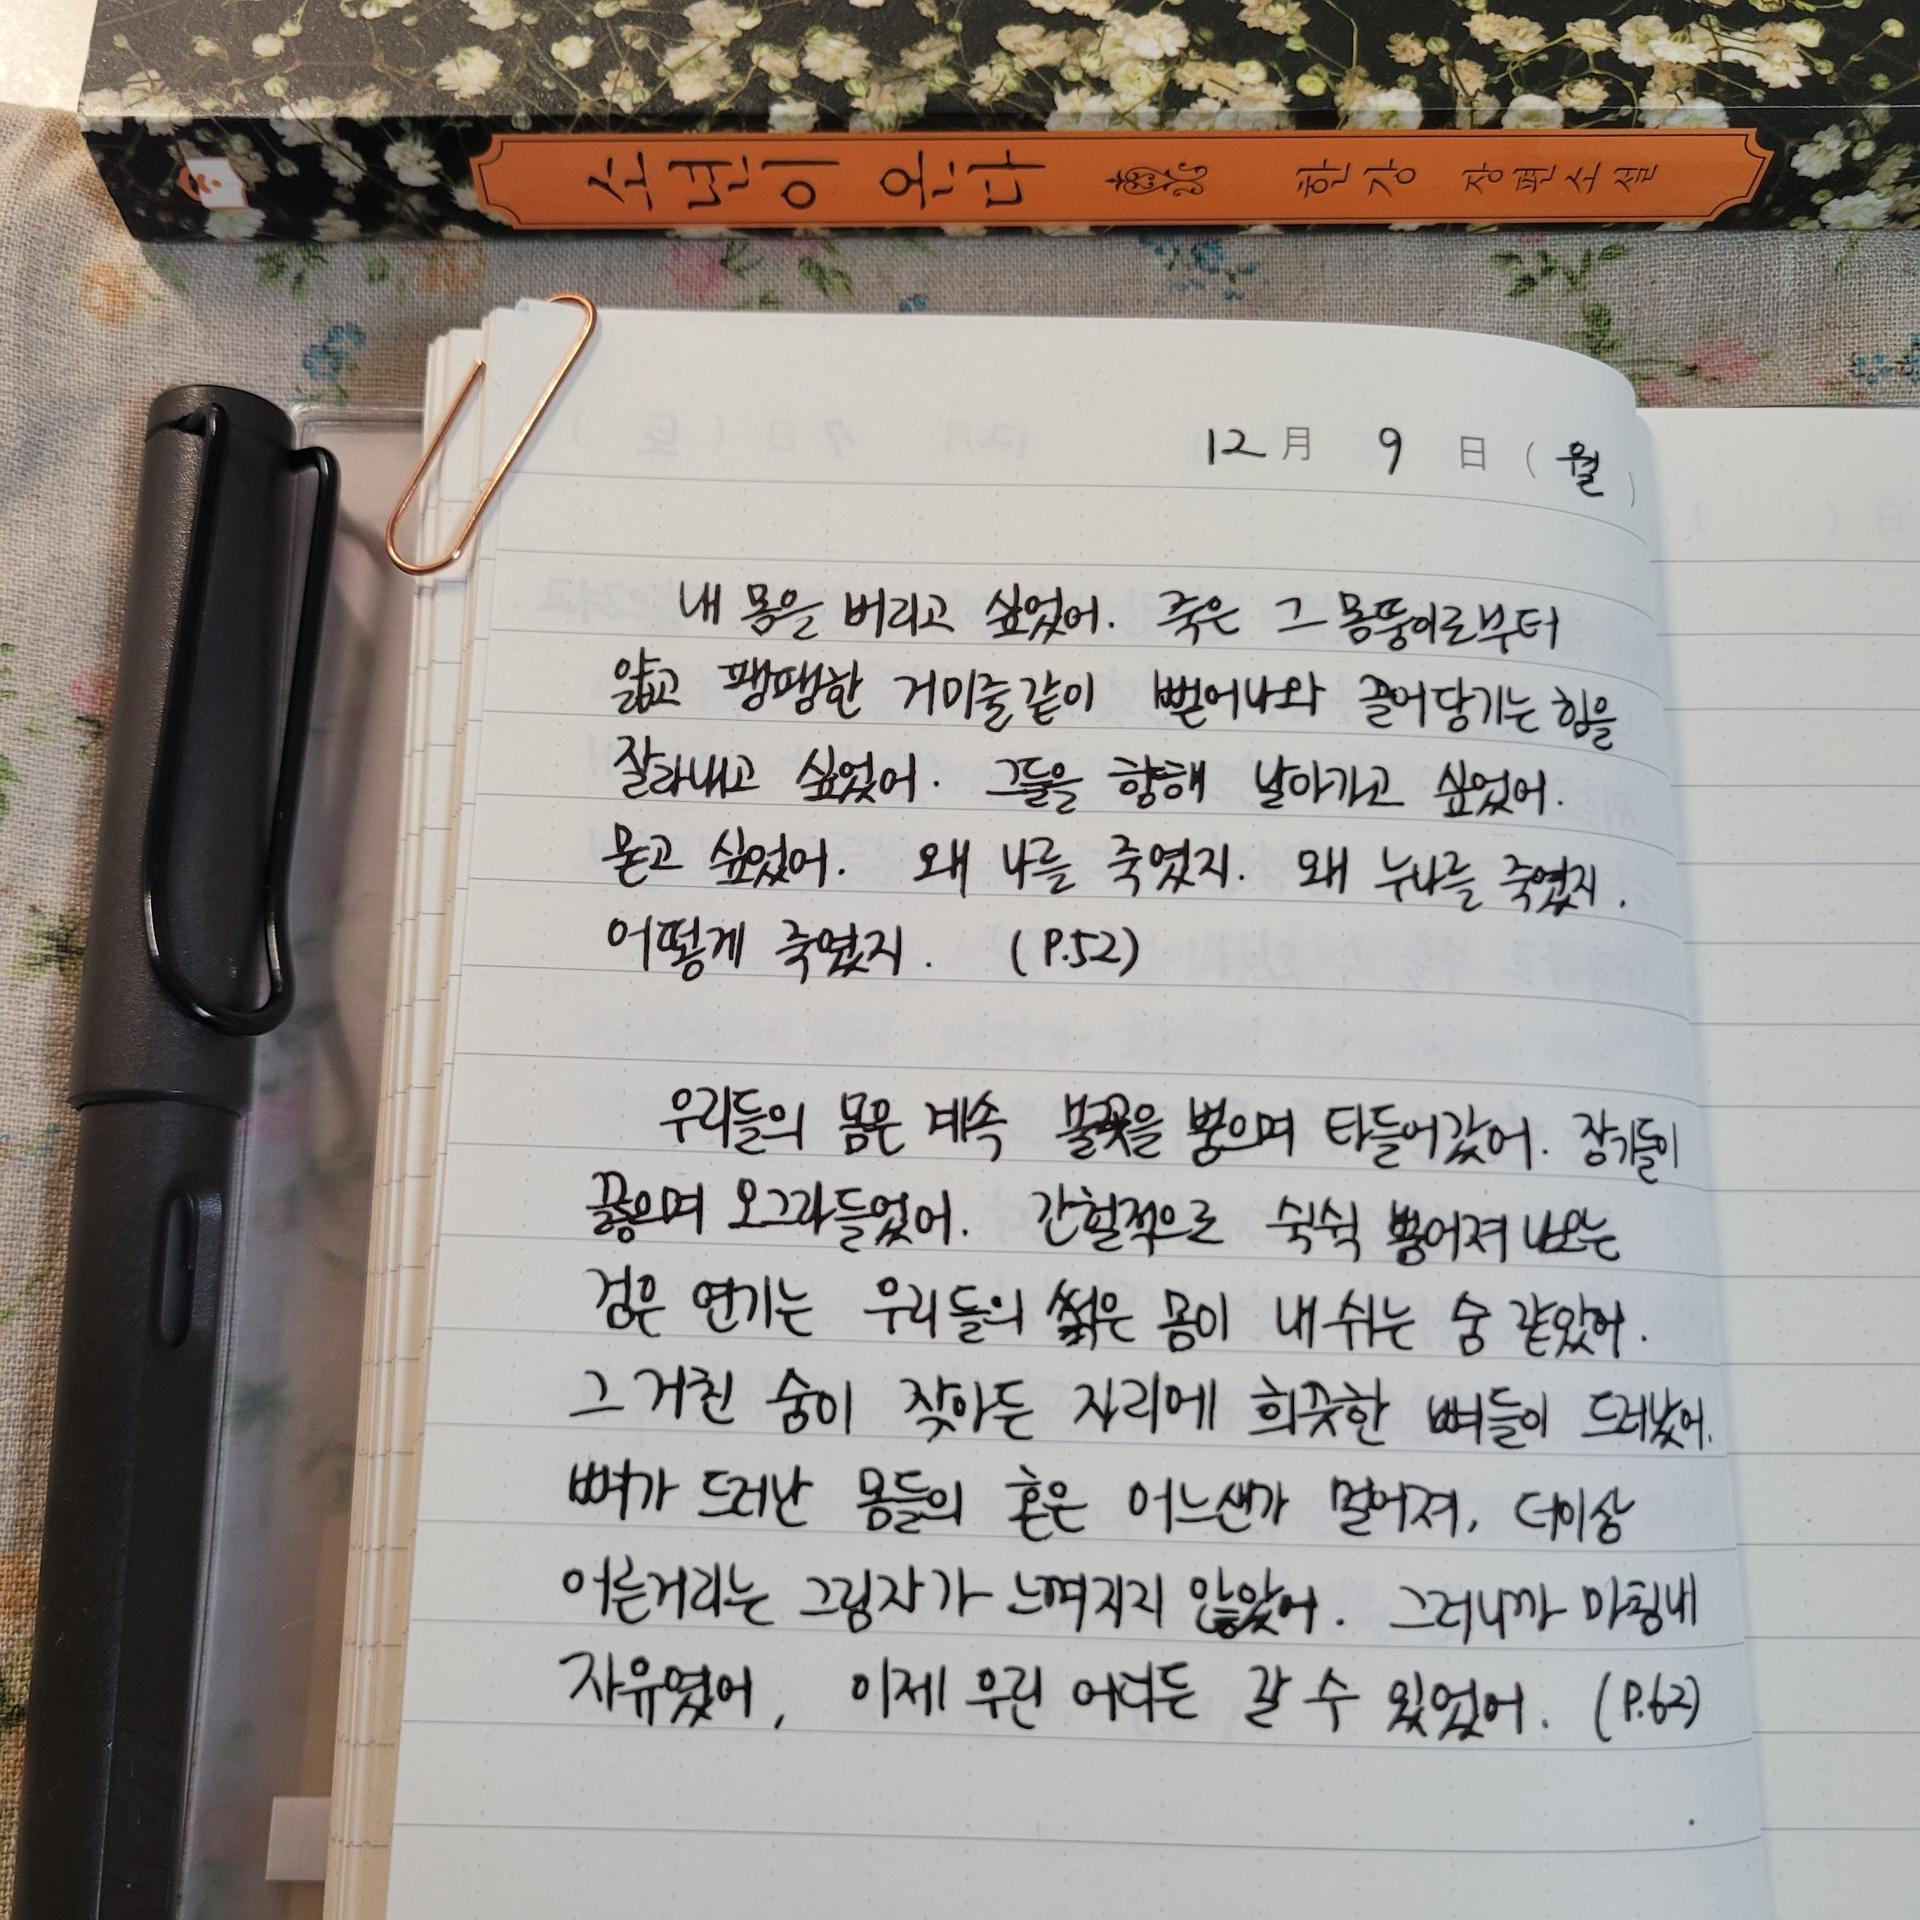 소년이 온다 한강 장편소설
12月 9日(월)
내 몸을 버리고 싶었어. 죽은 그 몸뚱이로부터
얇고 팽팽한 거미줄같이 뻗어나와 끌어당기는 힘을
잘라내고 싶었어. 그들을 향해 날아가고 싶었어.
묻고 싶었어. 왜 나를 죽였지. 왜 누나를 죽였지.
어떻게 죽였지. (P.52)
우리들의 몸은 계속 불꽃을 뿜으며 타들어갔어. 장기들이
끓으며 오그라들었어. 간헐적으로 쉭쉭 뿜어져 나오는
검은 연기는 우리들의 썩은 몸이 내쉬는 숨 같았어.
그 거친 숨이 잦아든 자리에 희끗한 뼈들이 드러났어.
뼈가 드러난 몸들의 혼은 어느샌가 멀어져, 더이상
어른거리는 그림자가 느껴지지 않았어. 그러니까 마침내
자유였어, 이제 우린 어디든 갈 수 있었어. (P.62)